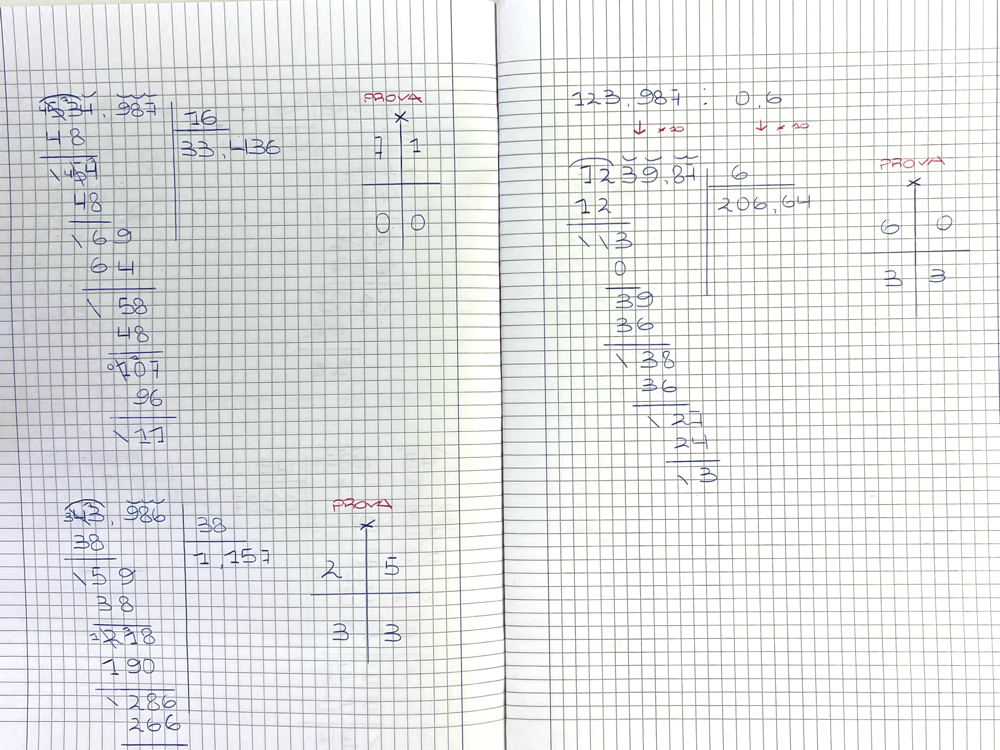 534,987 16
48 33,436
54
48
69
64
58
48
107
96
11
PROVA
×
7 1
0 0
43,986 38
38 1,157
59
38
218
190
286
266
PROVA
×
2 5
3 3
123,987 : 0,6
↓ × 10 ↓ × 10
1239,87 6
12 206,64
3
0
39
36
38
36
27
24
3
PROVA
×
6 0
3 3